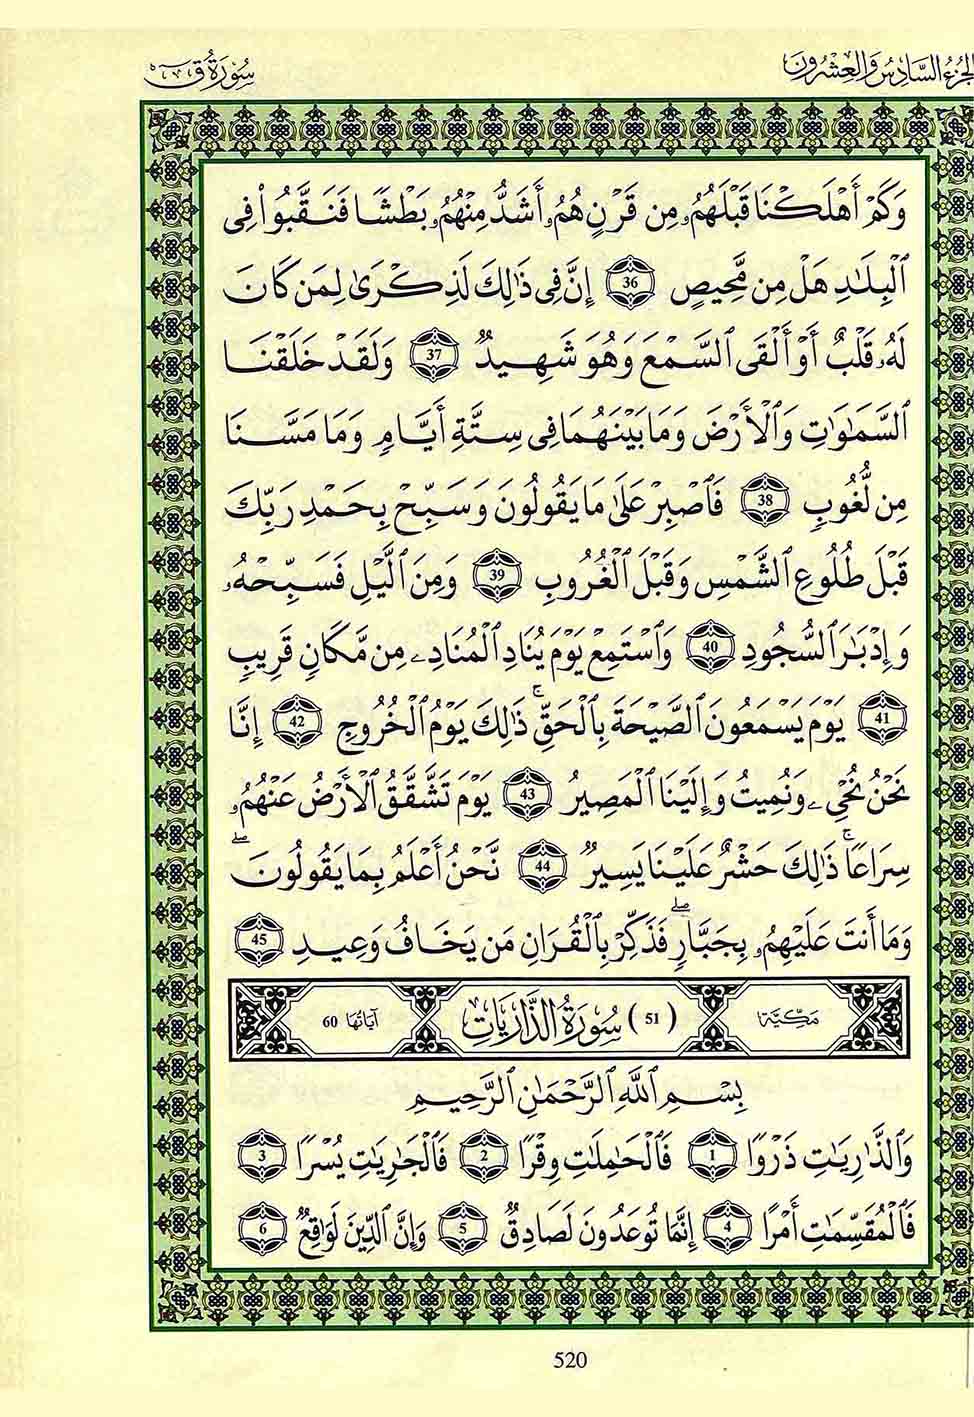 الجزء السادس والعشرون
سورة ق
وَكَمْ أَهْلَكْنَا قَبْلَهُمُۥ مِن قَرْنٍ هُمُۥ أَشَدُّ مِنْهُمُۥ بَطْشًا فَنَقَّبُوا۟ فِى
ٱلْبِلَٰدِ هَلْ مِن مَّحِيصٍ 36 إِنَّ فِى ذَٰلِكَ لَذِكْرَىٰ لِمَن كَانَ
لَهُۥ قَلْبٌ أَوْ أَلْقَى ٱلسَّمْعَ وَهُوَ شَهِيدٌ 37 وَلَقَدْ خَلَقْنَا
ٱلسَّمَٰوَٰتِ وَٱلْأَرْضَ وَمَا بَيْنَهُمَا فِى سِتَّةِ أَيَّامٍ وَمَا مَسَّنَا
مِن لُّغُوبٍ 38 فَٱصْبِرْ عَلَىٰ مَا يَقُولُونَ وَسَبِّحْ بِحَمْدِ رَبِّكَ
قَبْلَ طُلُوعِ ٱلشَّمْسِ وَقَبْلَ ٱلْغُرُوبِ 39 وَمِنَ ٱلَّيْلِ فَسَبِّحْهُۥ
وَإِدْبَٰرَ ٱلسُّجُودِ 40 وَٱسْتَمِعْ يَوْمَ يُنَادِ ٱلْمُنَادِۦ مِن مَّكَانٍ قَرِيبٍ
41 يَوْمَ يَسْمَعُونَ ٱلصَّيْحَةَ بِٱلْحَقِّ ۚ ذَٰلِكَ يَوْمُ ٱلْخُرُوجِ 42 إِنَّا
نَحْنُ نُحْىِۦ وَنُمِيتُ وَإِلَيْنَا ٱلْمَصِيرُ 43 يَوْمَ تَشَّقَّقُ ٱلْأَرْضُ عَنْهُمُۥ
سِرَاعًا ۚ ذَٰلِكَ حَشْرٌ عَلَيْنَا يَسِيرٌ 44 نَّحْنُ أَعْلَمُ بِمَا يَقُولُونَ ۖ
وَمَا أَنتَ عَلَيْهِمُۥ بِجَبَّارٍ ۖ فَذَكِّرْ بِٱلْقُرَانِ مَن يَخَافُ وَعِيدِ 45
مكية (51) سورة الذاريات آياتها 60
بِسْمِ ٱللَّهِ ٱلرَّحْمَٰنِ ٱلرَّحِيمِ
وَٱلذَّٰرِيَٰتِ ذَرْوًا 1 فَٱلْحَٰمِلَٰتِ وِقْرًا 2 فَٱلْجَٰرِيَٰتِ يُسْرًا 3
فَٱلْمُقَسِّمَٰتِ أَمْرًا 4 إِنَّمَا تُوعَدُونَ لَصَادِقٌ 5 وَإِنَّ ٱلدِّينَ لَوَٰقِعٌ 6
520